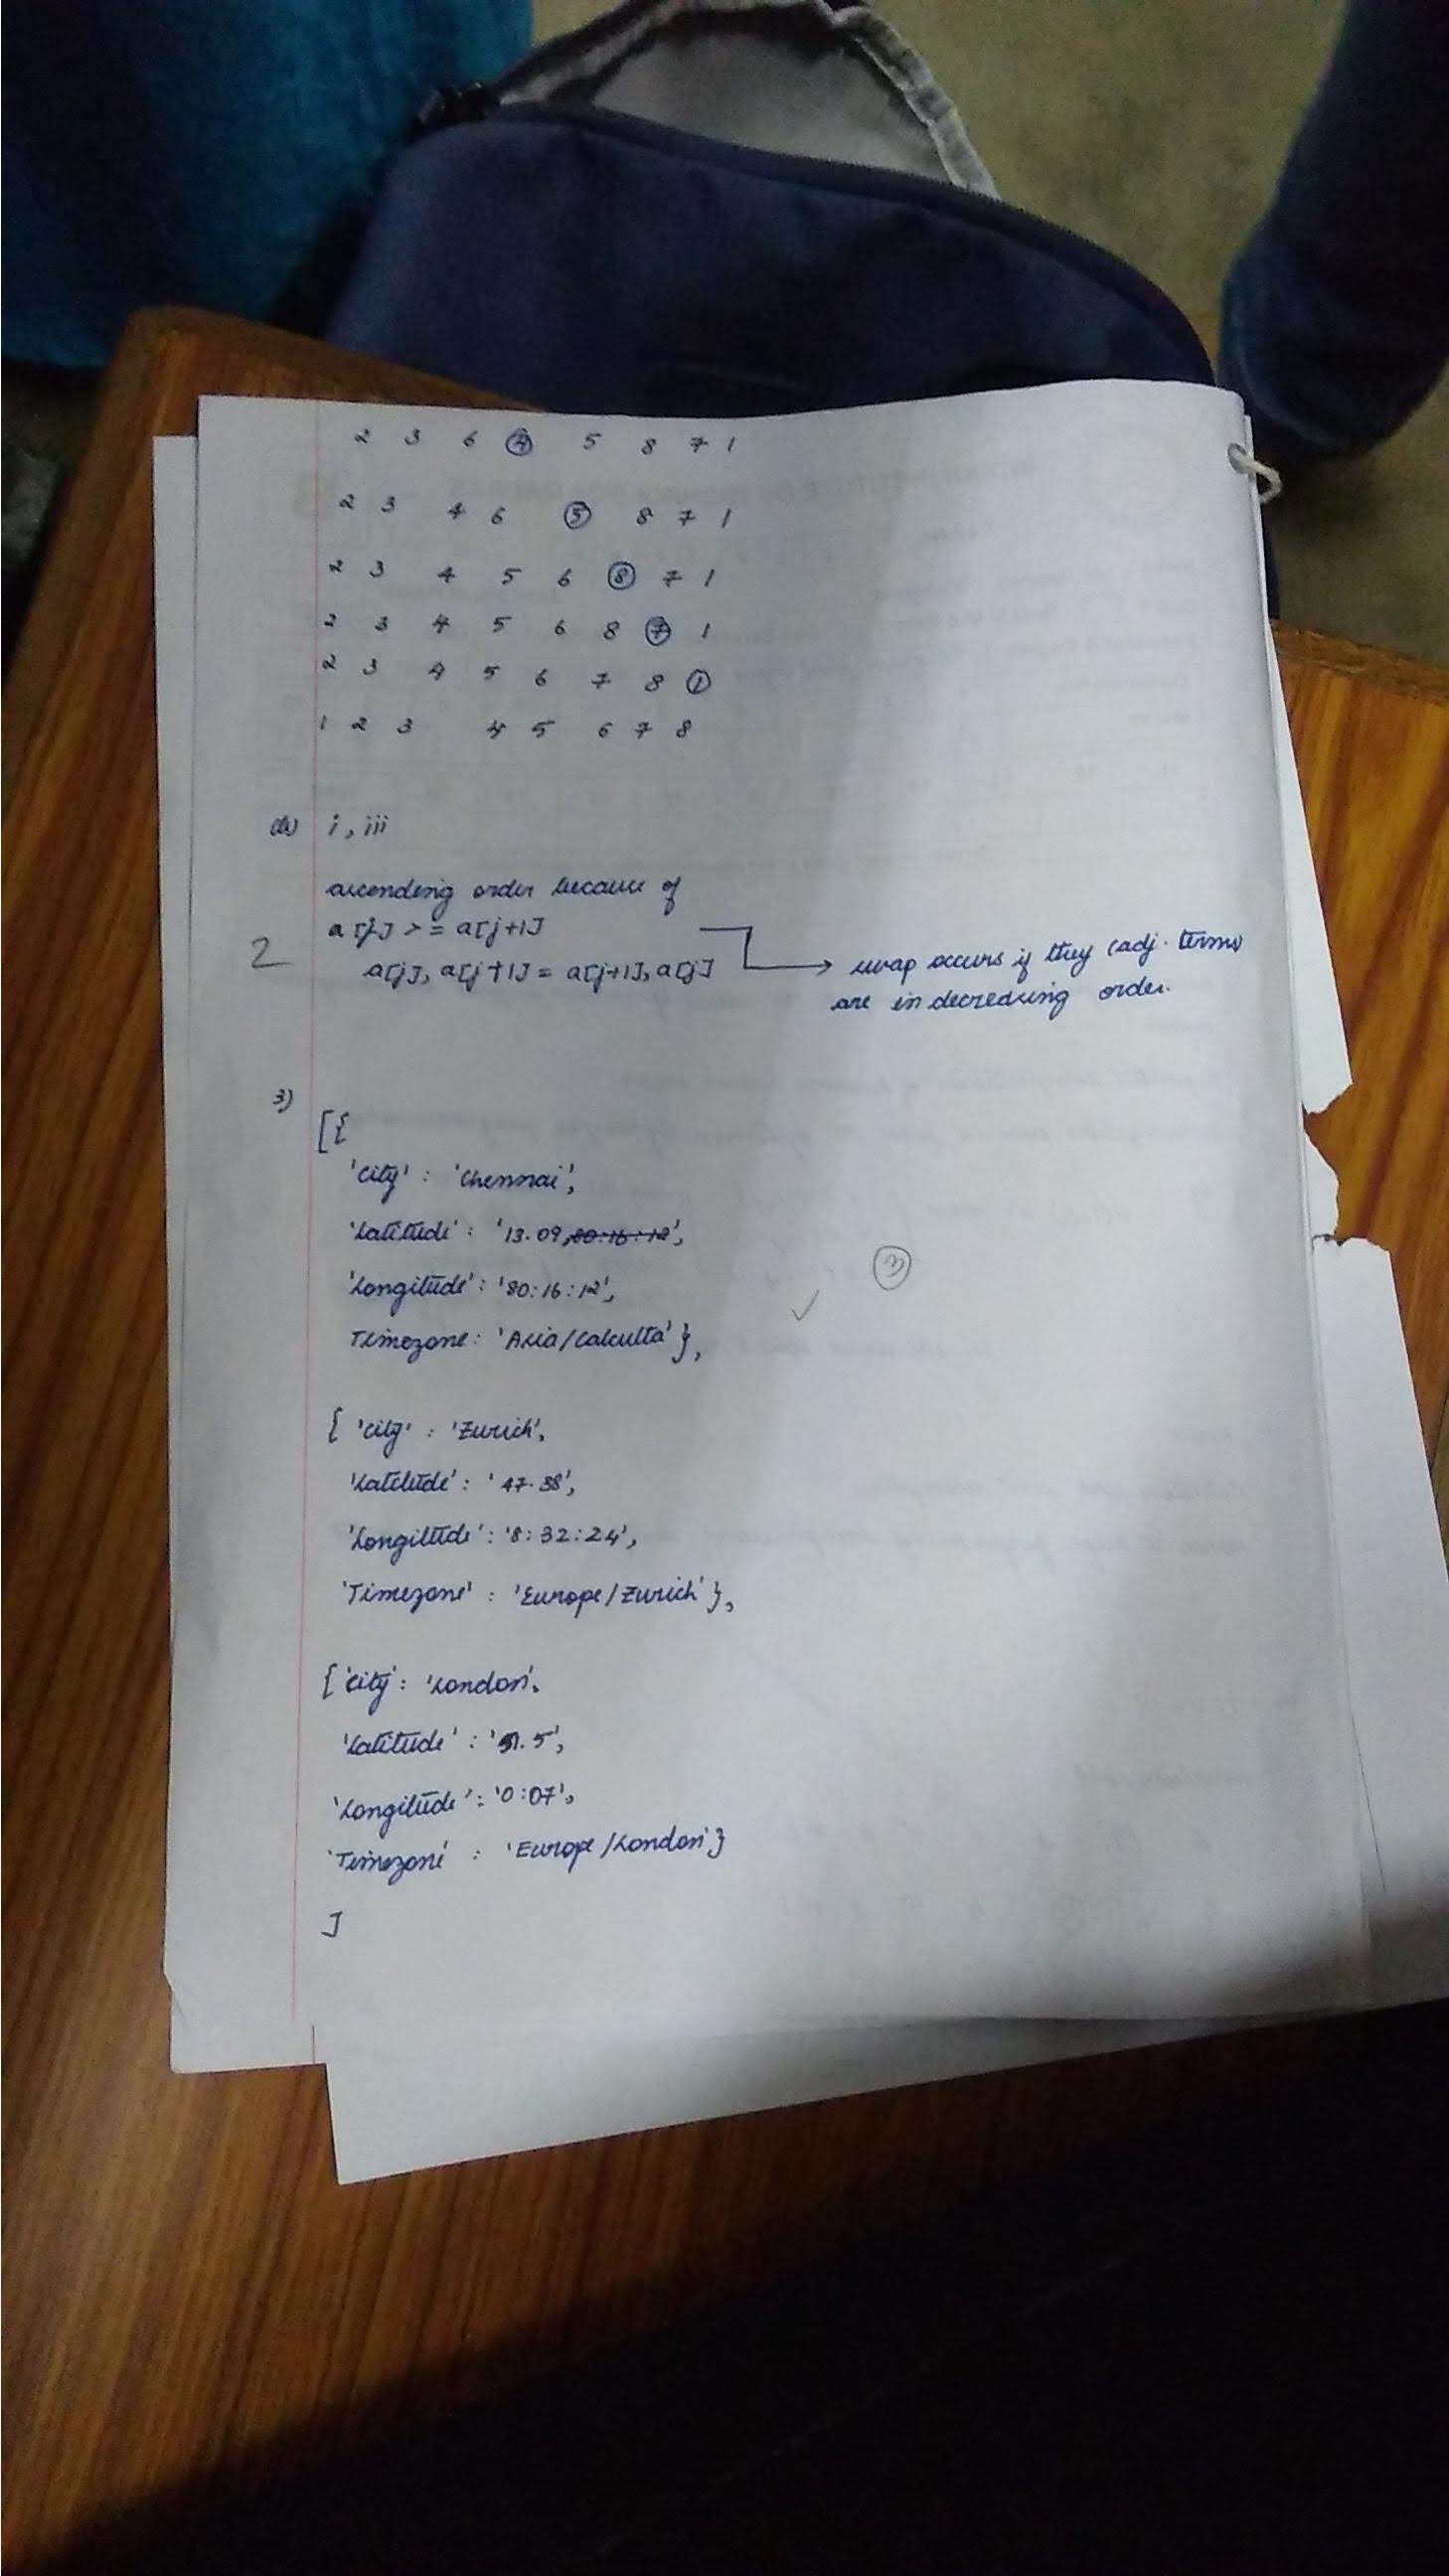 2 3 6 4 5 8 7 1
2 3 4 6 5 8 7 1
2 3 4 5 6 8 7 1
2 3 4 5 6 8 7 1
2 3 4 5 6 7 8 1
1 2 3 4 5 6 7 8
i, iii
ascending order because of
a[j] >= a[j+1]
2
a[j], a[j+1] = a[j+1], a[j]
swap occurs if they (adj. terms)
are in decreasing order.
3)
[{
'City' : 'Chennai',
'Latitude' : '13.09,80:16:12',
3
'Longitude' : '80:16:12',
Timezone: 'Asia/Calcutta' },
{ 'City' : 'Zurich',
'Latitude' : '47.38',
'Longitude' : '8:32:24',
'Timezone' : 'Europe/Zurich' },
{ 'City' : 'London',
'Latitude' : '51.5',
'Longitude' : '0:07',
'Timezone' : 'Europe/London' }
]